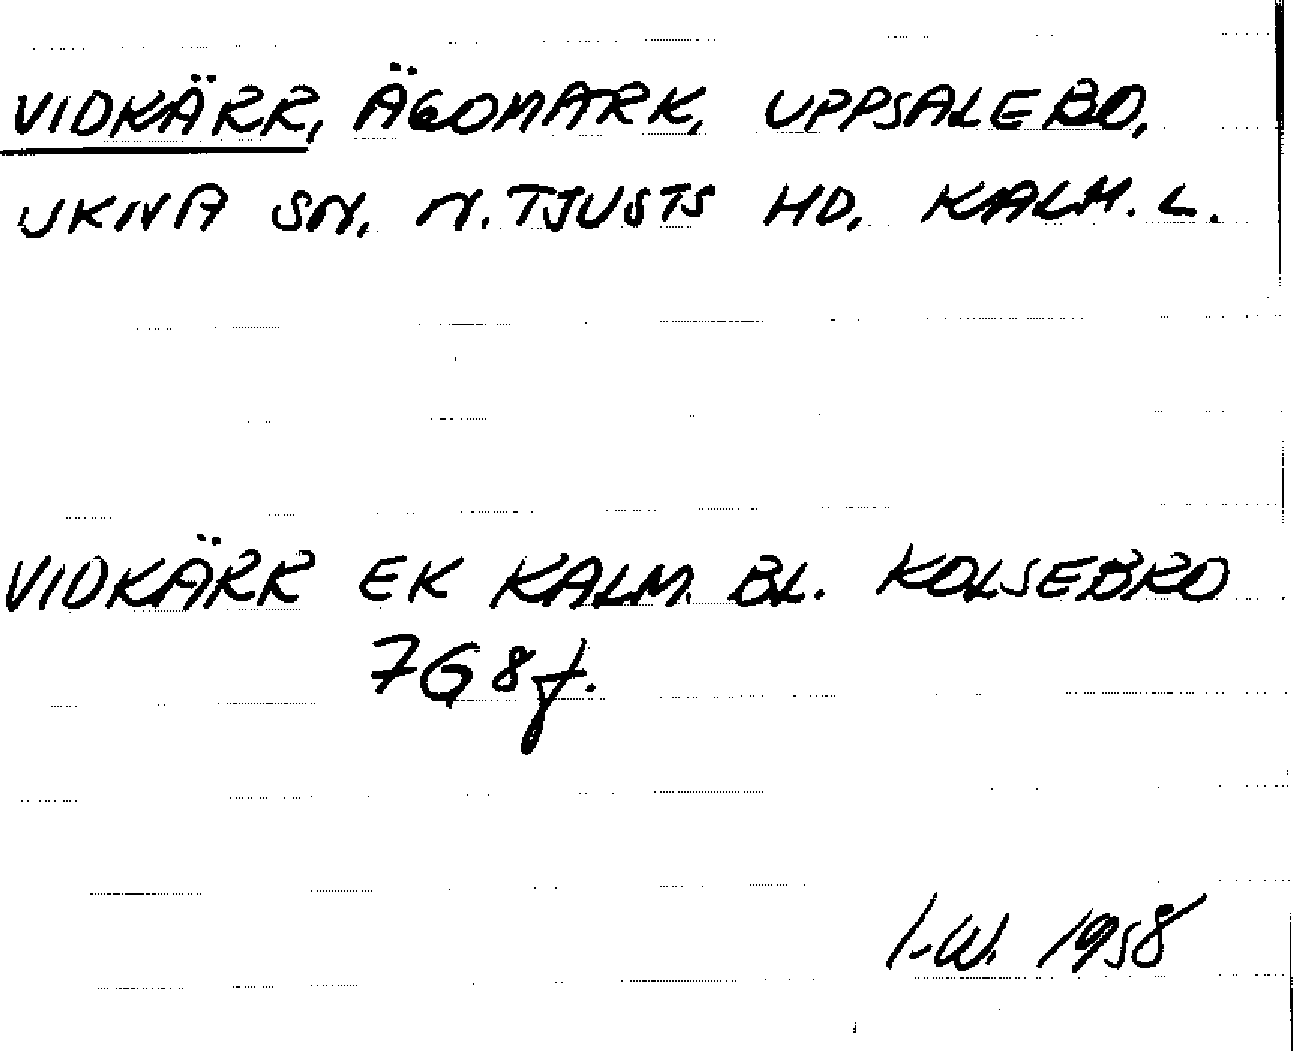 VIDKÄRR, ÄGOMARK, UPPSALEBO,
UKNA SN. N. TJUSTS HD. KALM. L.
VIDKÄRR EK KALM. BL. KOLSEBRO
7G8f.
I-W. 1958